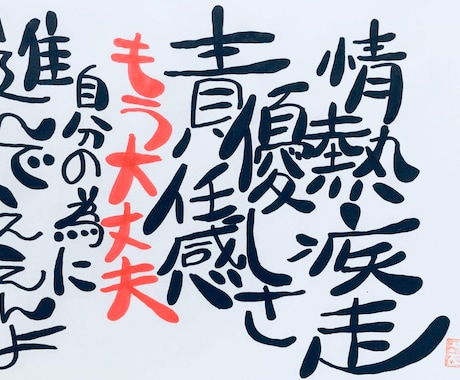 情熱疾走
優しさ
責任感
もう大丈夫
自分の為に
進んでええんよ